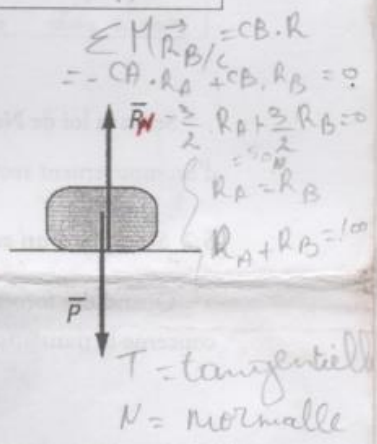 Σ M R⃗ B/C = CB.R
= - CA.R_A + CB.R_B = 0
R̄_N
- 3/2 R_A + 3/2 R_B = 0
R_A = R_B
R_A + R_B = 100
P̄
T = tangentiell
N = normalle